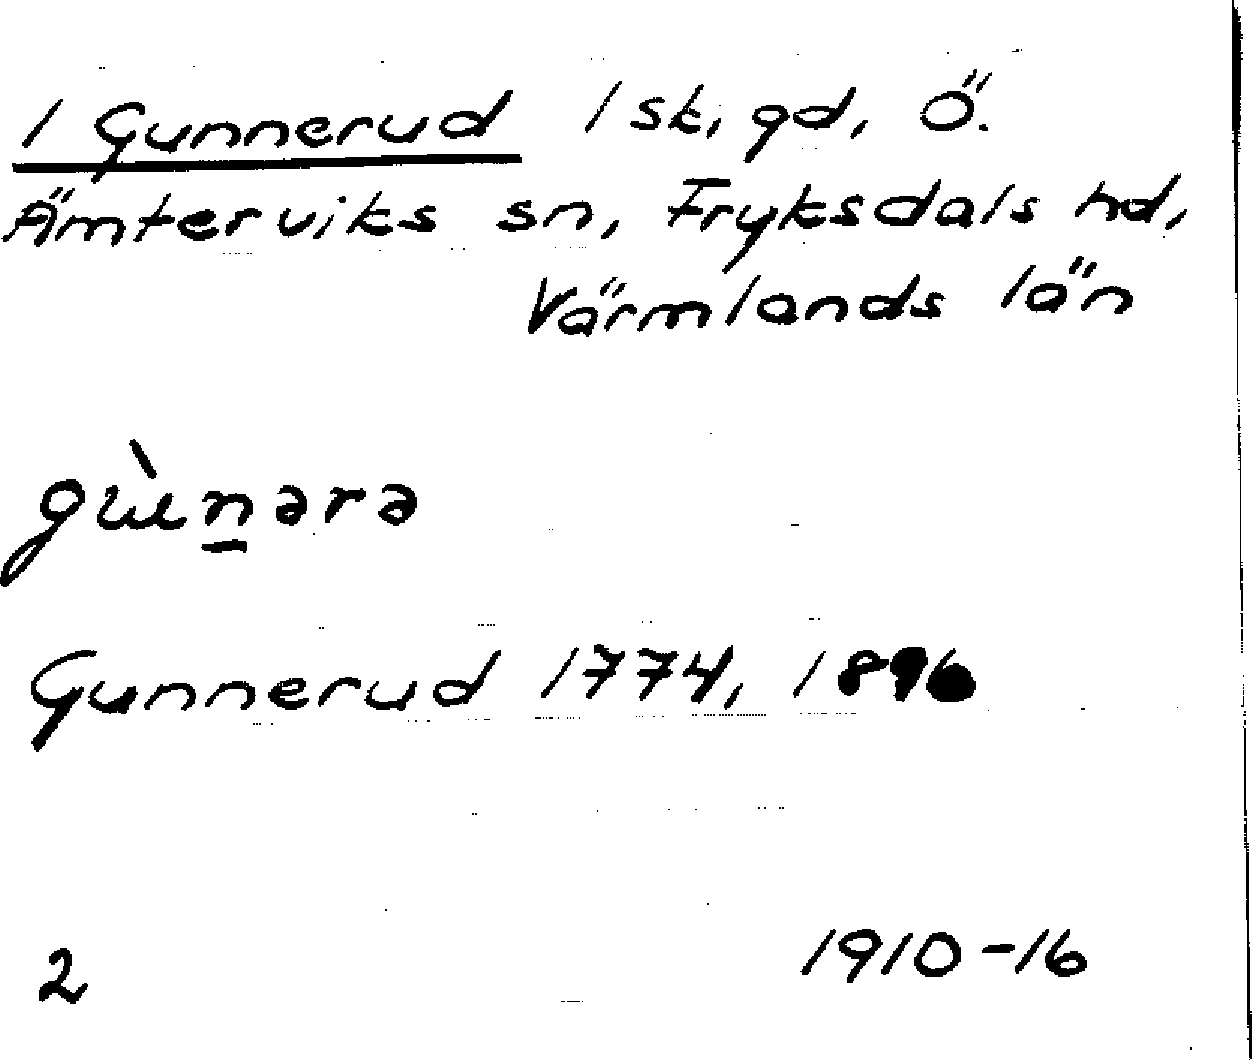 1 Gunnerud 1 sk, gd, Ö.
Ämterviks sn, Fryksdals hd,
Värmlands län
Gunnerud 1774, 1896
2
1910-16